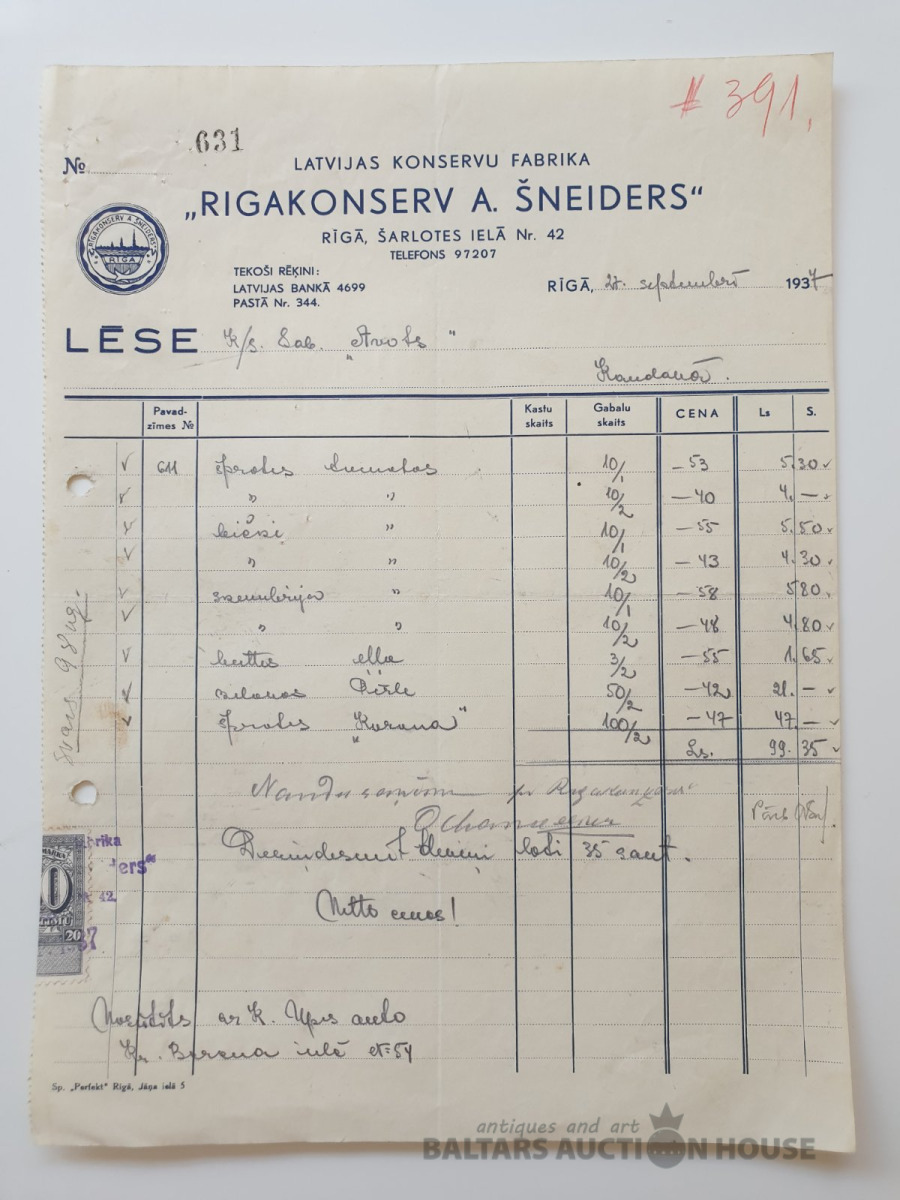 # 391,
№ 631
LATVIJAS KONSERVU FABRIKA
„RIGAKONSERV A. ŠNEIDERS“
RĪGĀ, ŠARLOTES IELĀ Nr. 42
TELEFONS 97207
„RIGAKONSERV A. ŠNEIDERS“
RĪGA
TEKOŠI RĒĶINI:
LATVIJAS BANKĀ 4699
PASTĀ Nr. 344.
RĪGĀ, 27. septembrī 1937
LĒSE K/s. Sab. „Avots“
Kandavā.
Pavad-zīmes № Kastu skaits Gabalu skaits CENA Ls S.
611 Šprotes tomatos 10/1 –53 5.30
" " 10/2 –40 4.–
" 10/1 –55 5.50
" " 10/2 –43 4.30
" 10/1 –58 5.80
" " 10/2 –48 4.80
eļļa 3/2 –55 1.65
50/2 –42 21.–
Šprotes „Korona“ 100/2 –47 47.–
Ls. 99.35
Naudu saņēmu pr
Deviņdesmit deviņi lati 35 sant.
Netto cenas!
brika
ers“
42.
20
Nosūtīts ar K. Upis auto
Kr. Barona ielā 54
Sp. „Perfekt“ Rīgā, Jāņa ielā 5
antiques and art
BALTARS AUCTION HOUSE